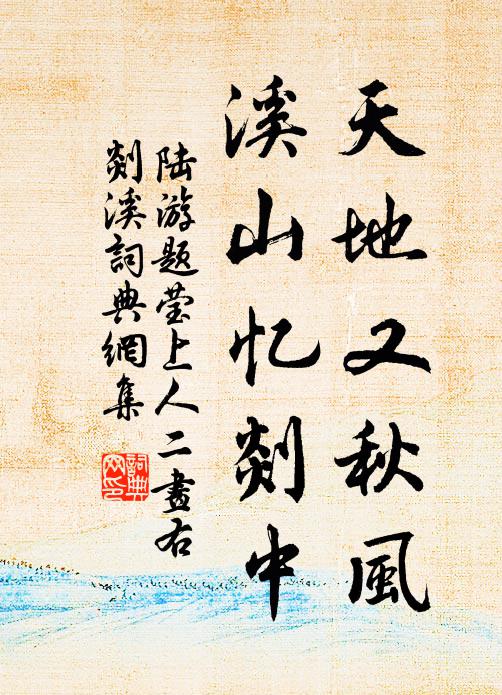 天地又秋風
溪山忆剡中
陆游题莹上人二畫右
剡溪詞典網集
詞典网印